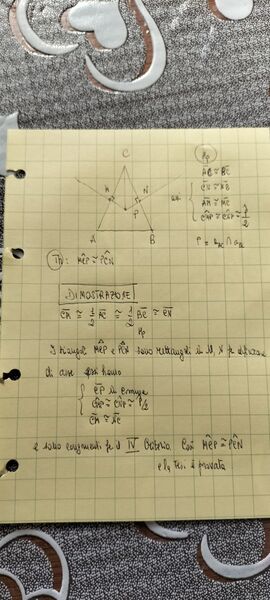 C
Hp
M N
P
A B
AC ≅ BC
CN ≅ NB
AM ≅ MC
CM̂P ≅ CN̂P ≅ P̂/2
P = a_AC ∩ a_CB
Th: MĈP ≅ PĈN
DIMOSTRAZIONE
CM ≅ 1/2 AC ≅ 1/2 BC ≅ CN
Hp
I triangoli MĈP e PĈN sono rettangoli in M, N per
di asse essi hanno
CP in comune
CM̂P ≅ CN̂P ≅ P̂/2
CM ≅
e sono congruenti per il IV Criterio. Così MĈP ≅ PĈN
e la tesi è provata